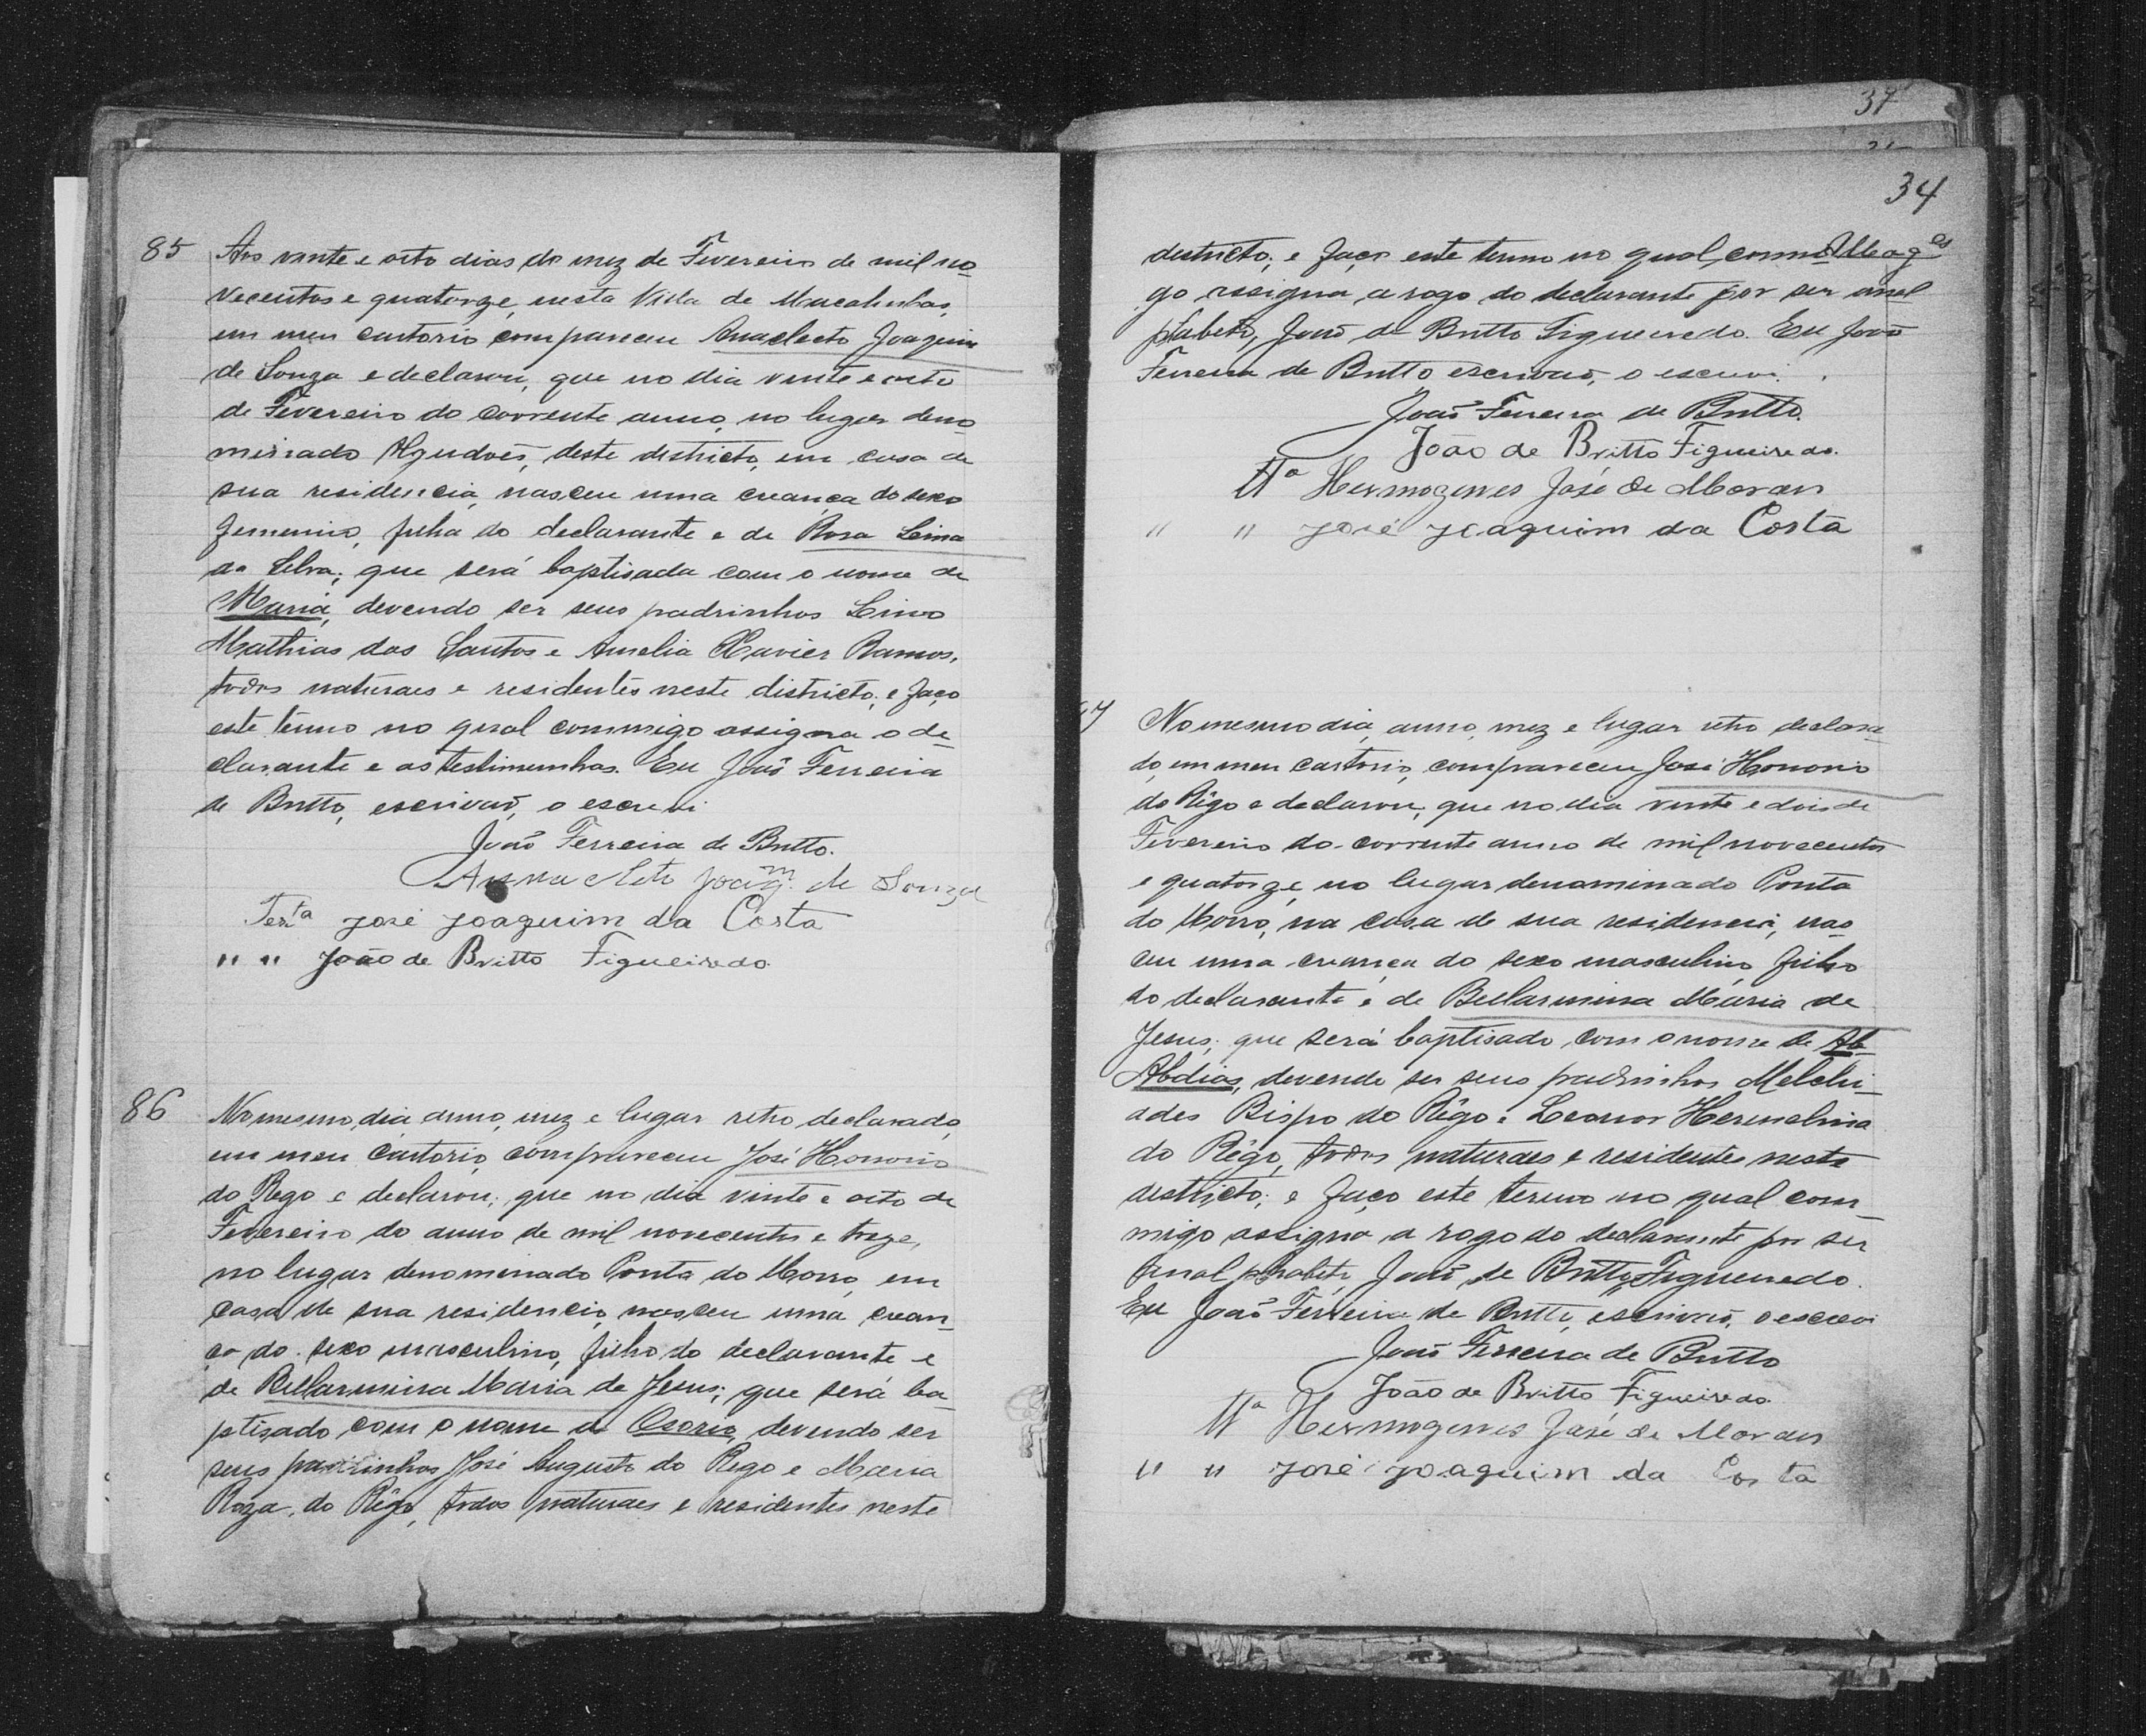 85 Aos vinte e oito dias do mez de Fevereiro de mil no-
vecentos e quatorze, nesta Villa de Macahubas,
em meu cartorio compareceu Anacleto Joaquim
de Souza e declarou, que no dia vinte e oito
de Fevereiro do corrente anno, no lugar deno-
minado Algudoēs, deste districto, em casa de
sua residencia, nasceu uma creança do sexo
femenino, filha do declarante e de Rosa Lima
da Silva; que será baptisada com o nome de
Maria, devendo ser seus padrinhos Lino
Mathias dos Santos e Amelia Xavier Ramos,
todos naturaes e residentes neste districto; e faço
este termo no qual commigo assigna o de-
clarante e as testimunhas. Eu João Ferreira
de Britto, escrivaõ, o escrevi
João Ferreira de Britto.
Annacleto Joaqm. de Souza
Testa José Joaquim da Costa
" " João de Britto Figueiredo
86 No mesmo, dia, anno, mez e lugar retro declarado,
em meu cartorio, compareceu José Honorio
do Rego e declarou; que no dia vinte e oito de
Fevereiro do anno de mil novecentos e treze,
no lugar denominado Ponta do Morro, em
casa de sua residencia, nasceu uma crean-
ça do sexo masculino, filho do declarante e
de Bellarmina Maria de Jesus; que será ba-
ptisado com o nome de Osorio, devendo ser
seus padrinhos José Augusto do Rego e Maria
Roza do Rêgo, todos naturaes e residentes neste
37
34
destricto; e faço este termo no qual, commi-
go assigna, a rogo do declarante por ser anal-
phabeto, João de Britto Figueiredo. Eu João
Ferreira de Britto escrivaõ, o escrevi.
João Ferreira de Britto.
João de Britto Figueiredo.
Tta Hermogenes José de Moraes
" " José Joaquim da Costa
No mesmo dia, anno, mez e lugar retro declara-
do, em meu cartorio, compareceu José Honorio
do Rêgo e declarou, que no dia vinte e dois de
Fevereiro do corrente anno de mil novecentos
e quatorze, no lugar denominado Ponta
do Morro, na casa de sua residencia, nas-
ceu uma creança do sexo masculino, filho
do declarante e de Bellarmina Maria de
Jesus; que será baptisado, com o nome de Ab-
Abdias, devendo ser seus padrinhos Melchi-
ades Bispo do Rêgo e Leonor Hermelina
do Rêgo, todos naturaes e residentes neste
districto; e faço este termo no qual com-
migo assigna a rogo do declarante por ser
analphabeto, João de Britto Figueiredo.
Eu João Ferreira de Britto, escrivaõ, o escrevi
João Ferreira de Britto
João de Britto Figueiredo
Tta Hermogenes José de Moraes
" " José Joaquim da Costa